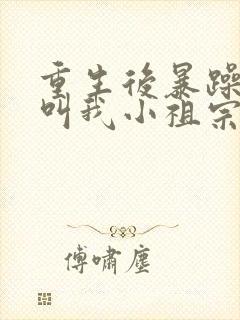 重生後暴躁
叫我小祖宗
傅嘯塵